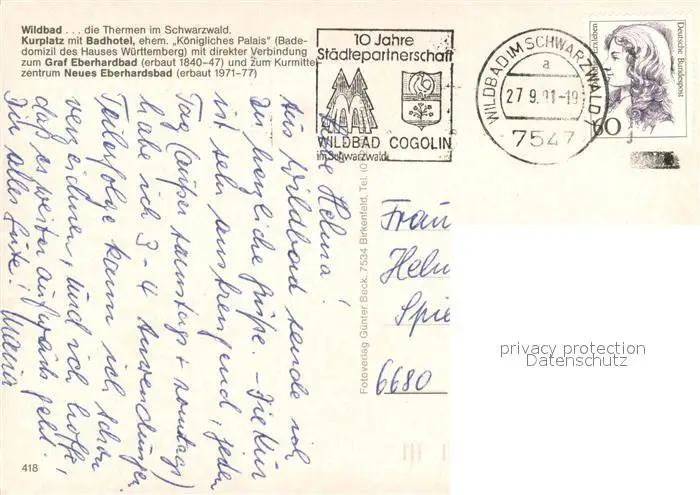 Wildbad . . . die Thermen im Schwarzwald.
Kurplatz mit Badhotel, ehem. „Königliches Palais" (Bade-
domizil des Hauses Württemberg) mit direkter Verbindung
zum Graf Eberhardbad (erbaut 1840–47) und zum Kurmittel-
zentrum Neues Eberhardsbad (erbaut 1971–77)
10 Jahre
Städtepartnerschaft
WILDBAD COGOLIN
im Schwarzwald
WILDBAD IM SCHWARZWALD
a
27.9.91-19
7547
Deutsche Bundespost
60
Liebe Helma!
Aus Wildbad sende ich
Dir herzliche Grüße. – Die Kur
ist sehr anstrengend, jeden
Tag (außer samstags + sonntags)
habe ich 3–4 Anwendungen.
Teilerfolge kann ich schon
verzeichnen, und ich hoffe,
daß es weiter aufwärts geht.
Dir alles Gute! Maria
Fotoverlag Günter Beck, 7534 Birkenfeld, Tel. (0
Frau
Helm
Spie
6680
privacy protection
Datenschutz
418